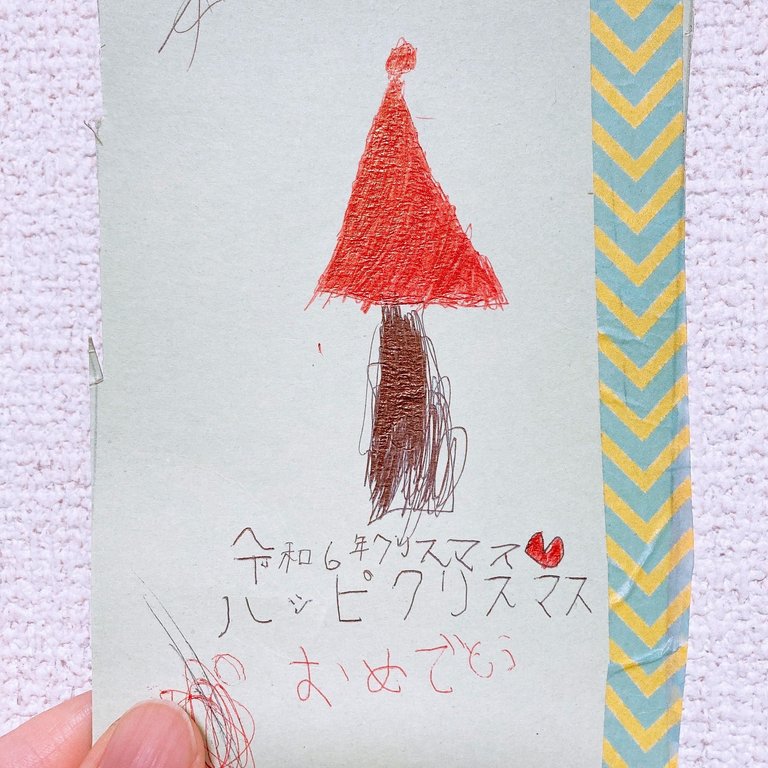 令和6年クリスマス
ハッピクリスマス
おめでとう